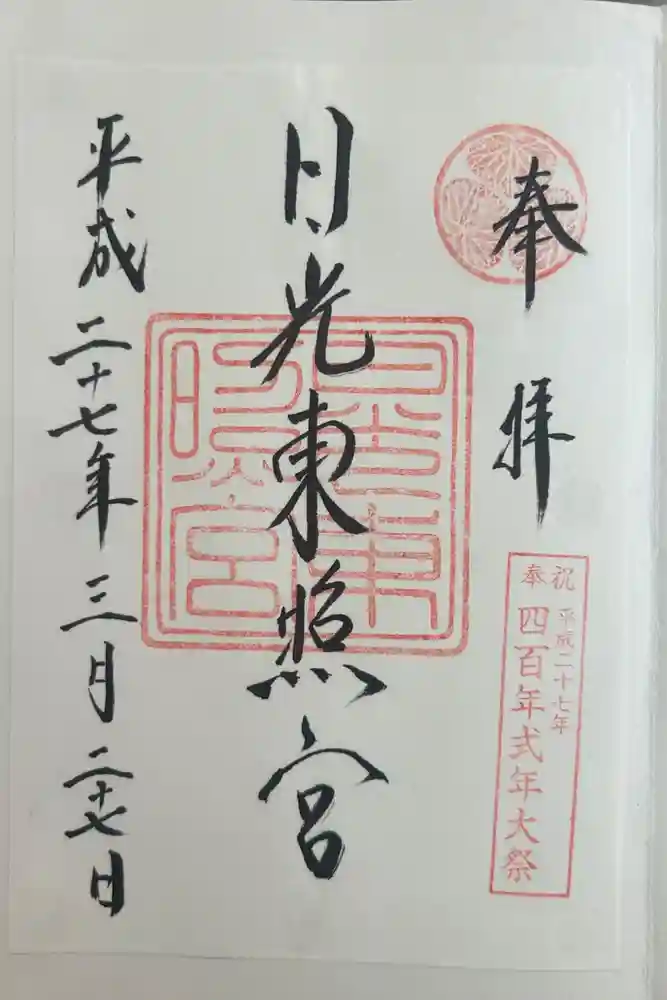 奉拝
奉祝 平成二十七年
四百年式年大祭
日光東照宮
日光東照宮
平成二十七年三月二十七日